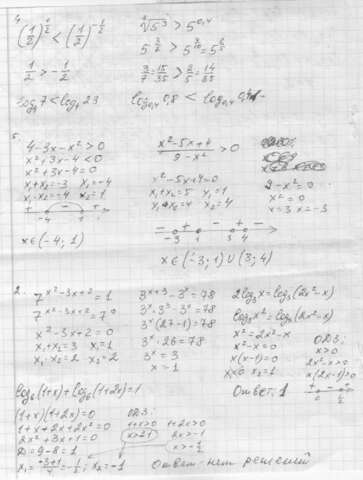 4.
(1/2)^(1/2) < (1/2)^(-1/2)
1/2 > -1/2
log₄ 7 < log₄ 23
⁷√5³ > 5^0,4
3/7 = 15/35 > 2/5 = 14/35
log₀,₄ 0,8 < log₀,₄
5.
4-3x-x² > 0
x²+3x-4 < 0
x²+3x-4=0
x₁+x₂=-3 x₁=-4
x₁·x₂=-4 x₂=1
+ - +
-4 1
x∈(-4; 1)
(x²-5x+4)/(9-x²) > 0
x²-5x+4=0
x₁+x₂=5 x₁=1
x₁·x₂=4 x₂=4
9-x²=0
x=3 x=-3
- + - + -
-3 1 3 4
x∈(-3; 1)∪(3; 4)
2.
7^(x²-3x+2) = 1
7^(x²-3x+2) = 7⁰
x²-3x+2=0
x₁+x₂=3 x₁=1
x₁·x₂=2 x₂=2
3^(x+3) - 3^x = 78
3^x·3³-3^x=78
3^x(27-1)=78
3^x·26=78
3^x=3
x=1
2log₃x=log₃(2x²-x)
log₃x²=log₃(2x²-x)
x²=2x²-x
x²-x=0
x(x-1)=0
x₁=0 x₂=1
Ответ: 1
ОДЗ:
x>0
2x²-x>0
x(2x-1)>0
+ - +
0 1/2
log₆(1+x)+log₆(1+2x)=1
(1+x)(1+2x)=0
1+x+2x+2x²=0
2x²+3x+1=0
D=9-8=1
x₁=(-3+1)/4=-1/2, x₂=-1
ОДЗ:
1+x>0 1+2x>0
2x>-1
x>-1/2
Ответ: нет решений